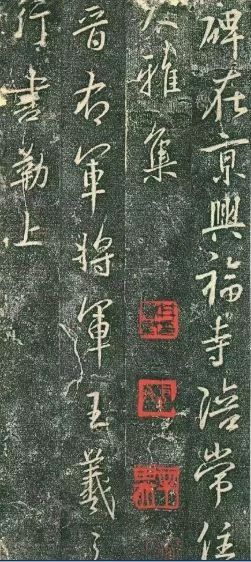 碑在京興福寺陪常住
大雅集
晉右軍將軍王羲之
行書勒上